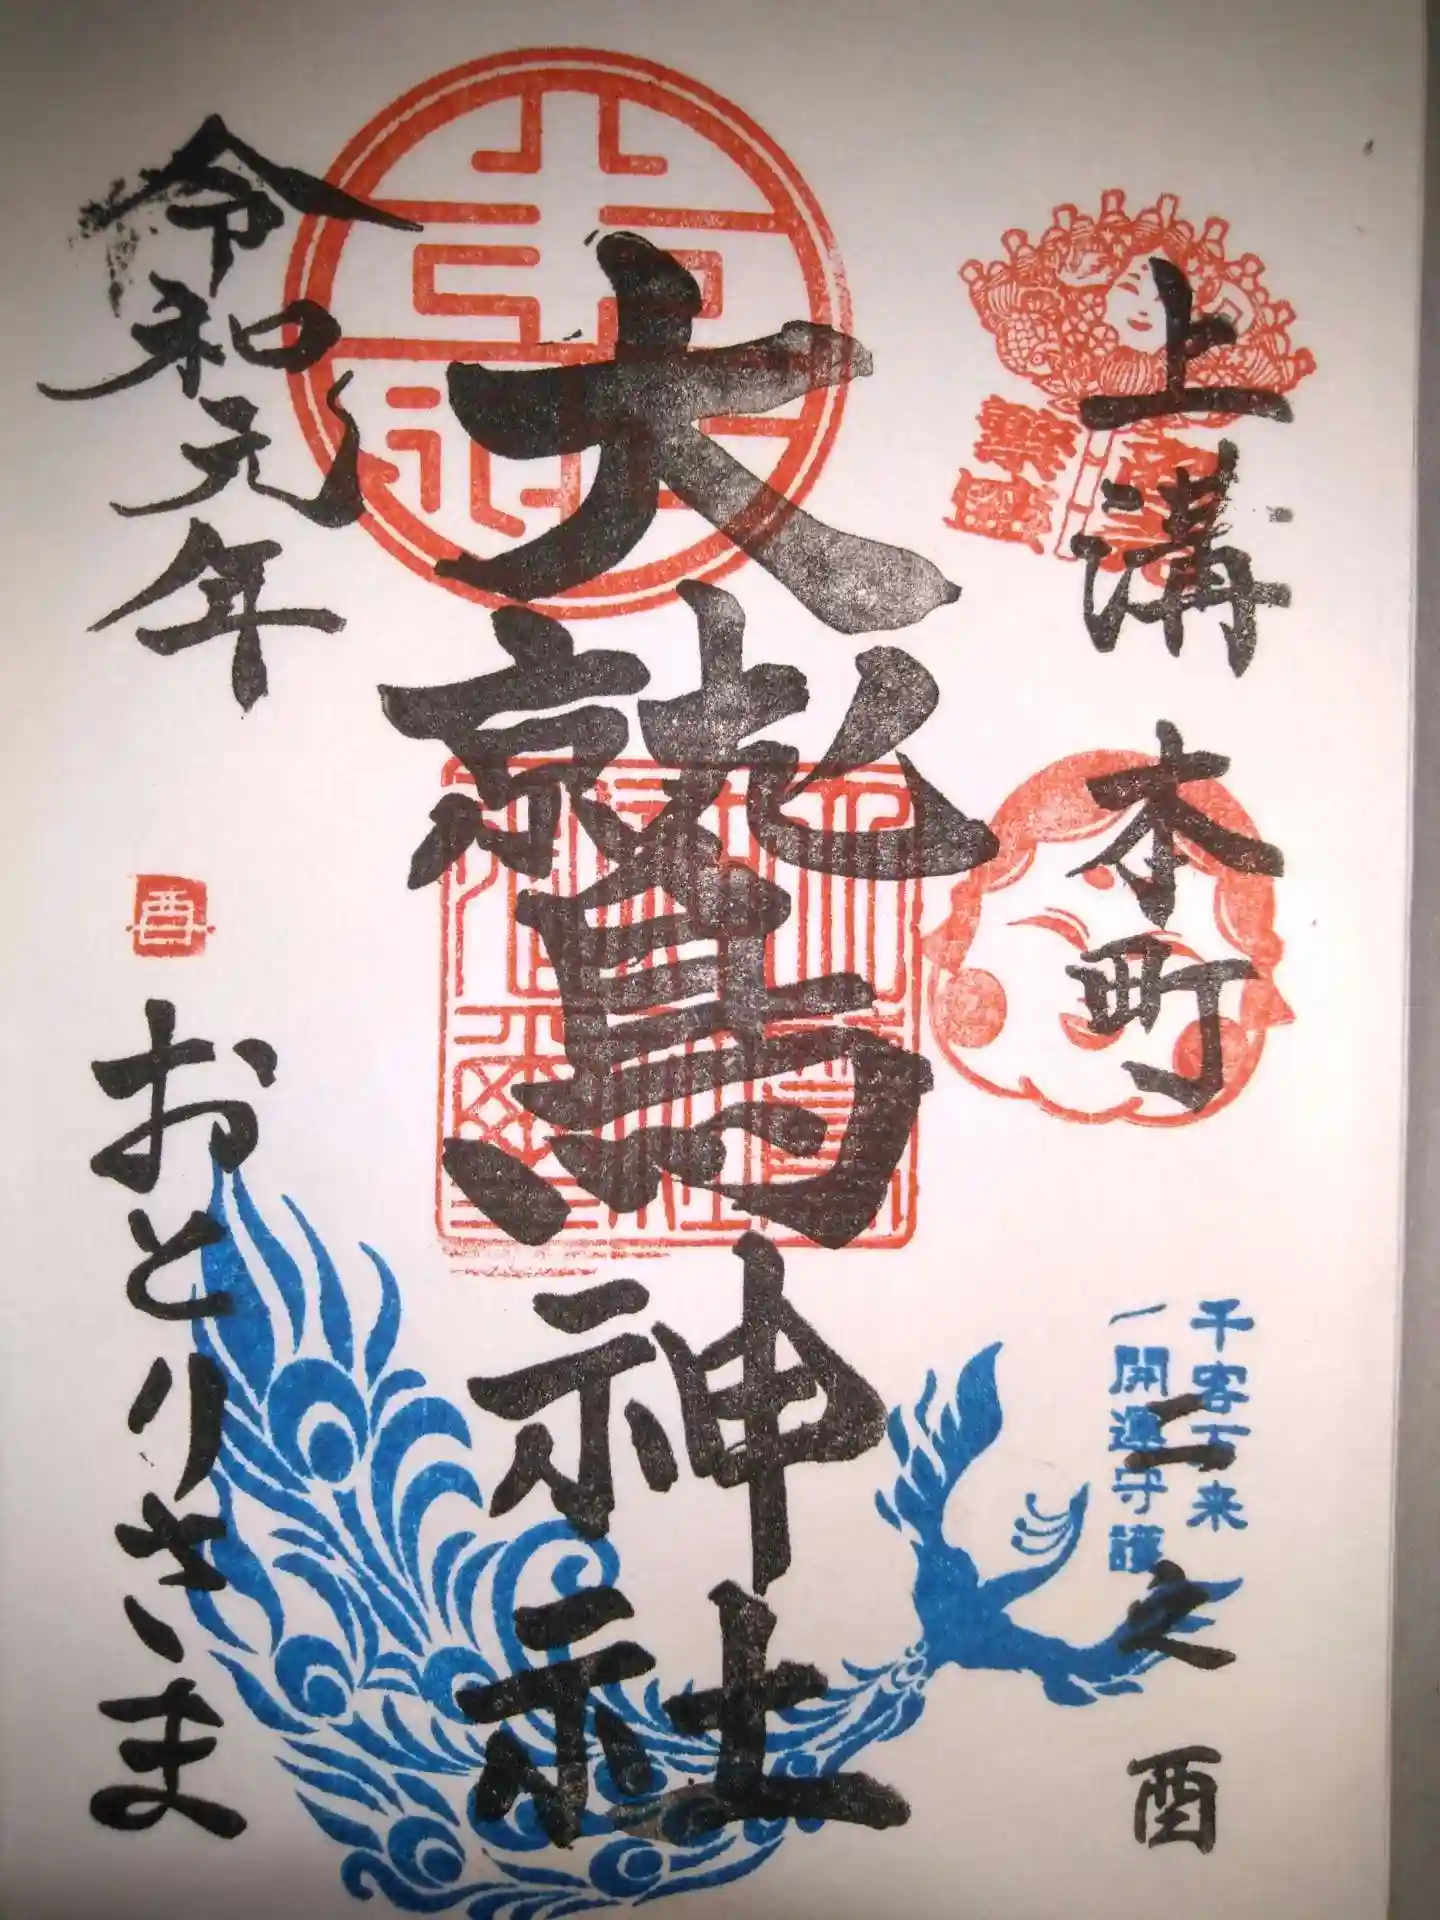 上溝
本町
二之酉
千客万来
開運守護
大鷲神社
令和元年
酉
おとりさま